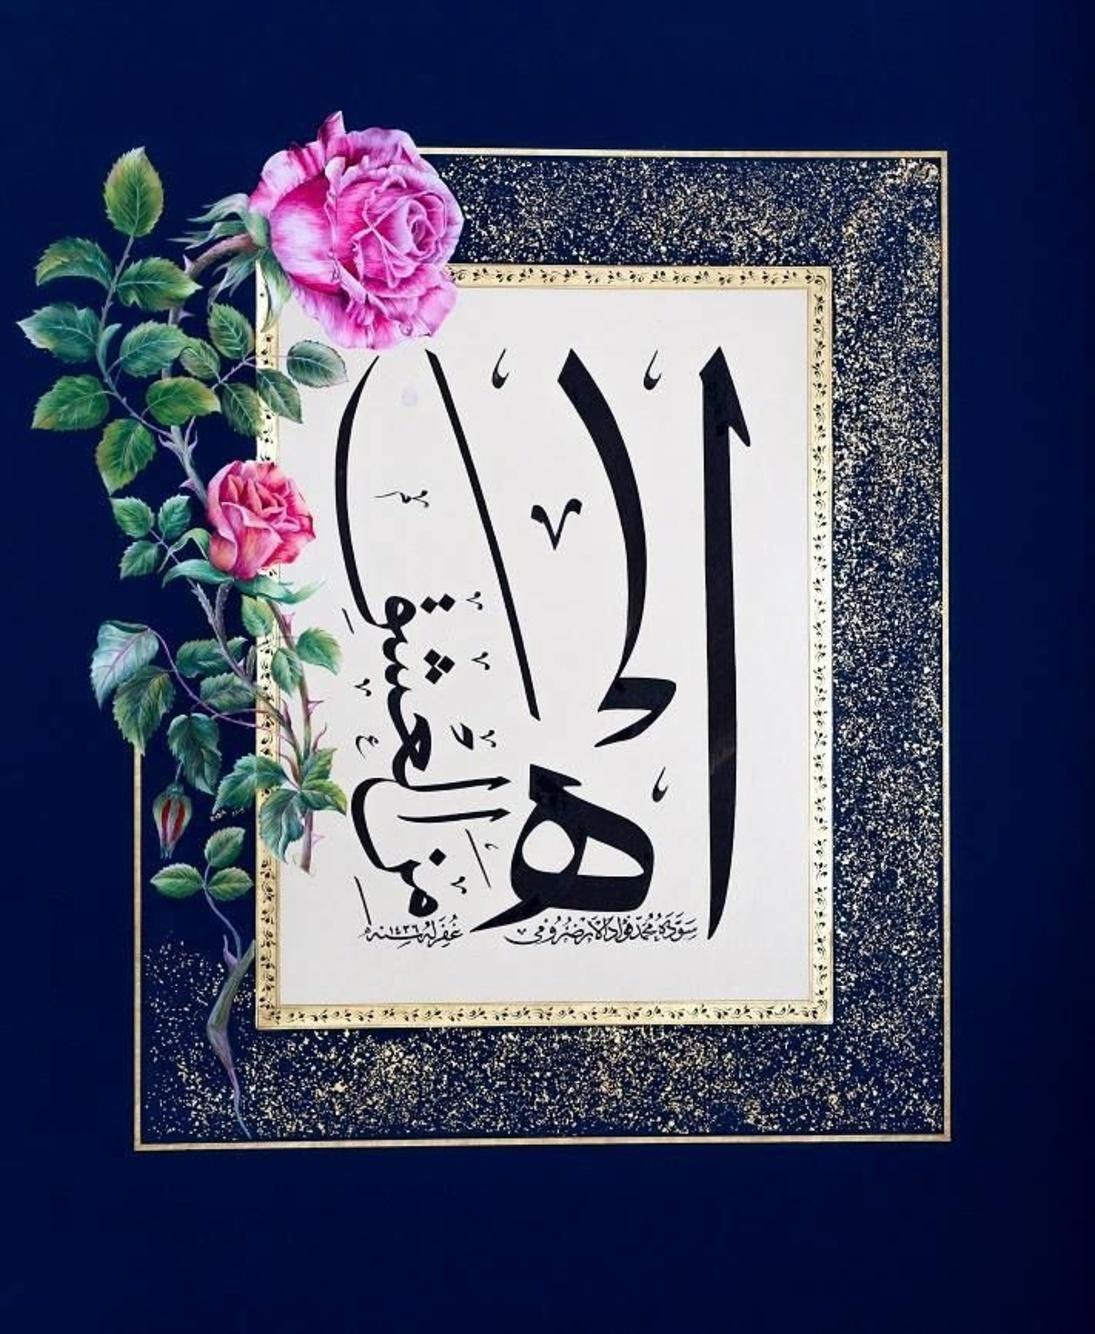 آه
من العشق
سوده محمد فؤاد الارضرومي غفر له سنه ١٤٣٦